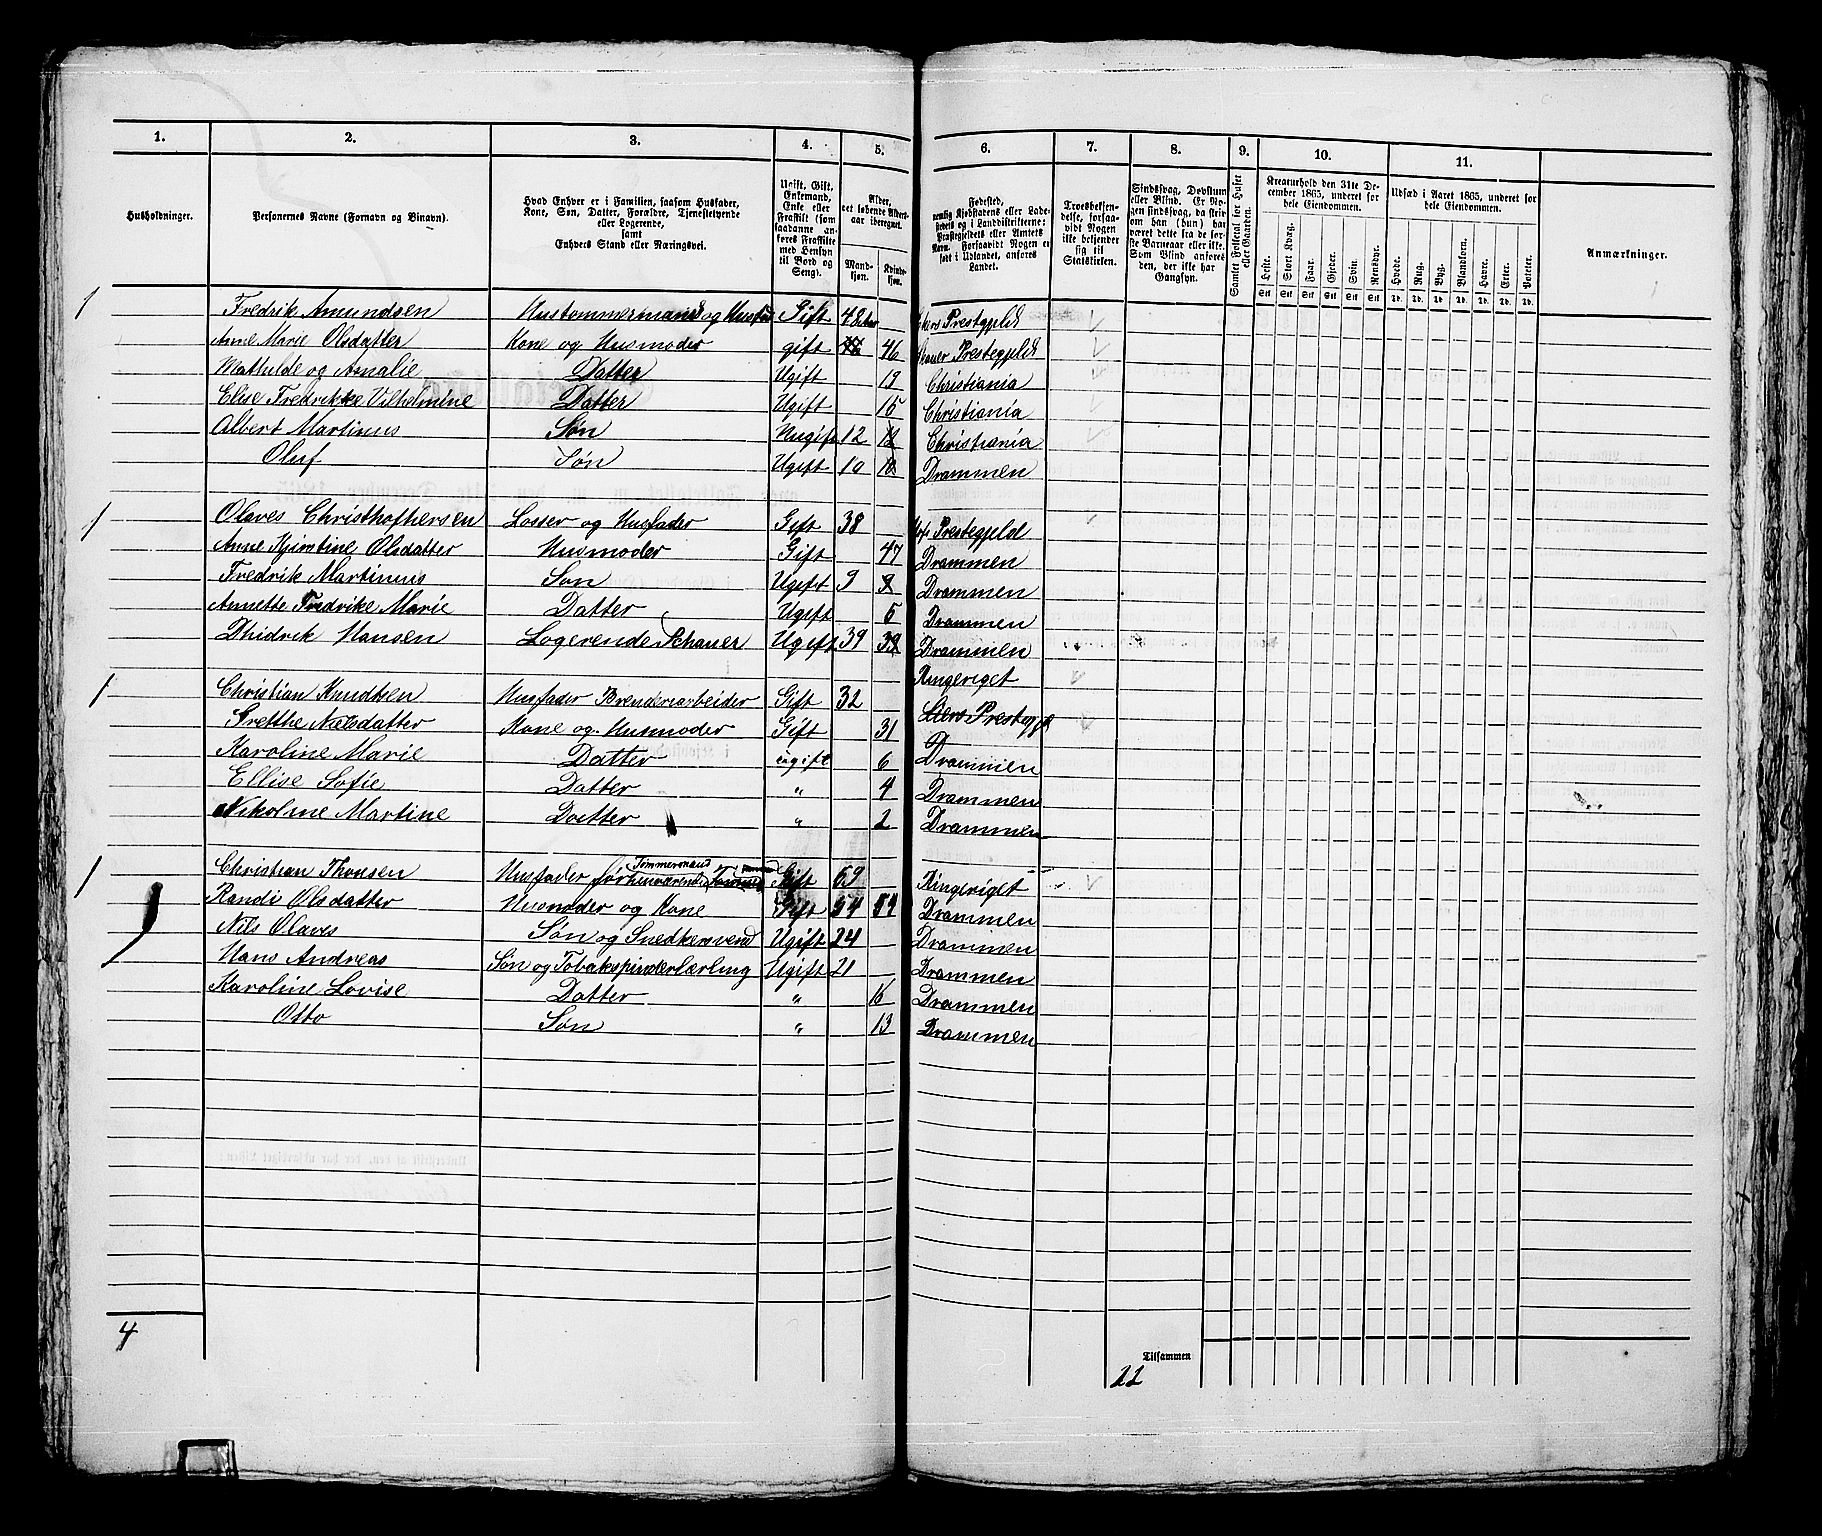 1. 2. 3. 4. 5. 6. 7. 8. 9. 10. 11.
Husholdninger.
Personernes Navne (Fornavn og Binavn).
Hvad Enhver er i Familien, saasom Husfader,
Kone, Søn, Datter, Forældre, Tjenestetyende
eller Logerende,
samt
Enhvers Stand eller Næringsvei.
Ugift, Gift,
Enkemand,
Enke eller
Fraskilt (som
saadanne an-
føres Fraskilte
med Hensyn
til Bord og
Seng).
Alder,
det løbende Alders-
aar iberegnet.
Mand-
kjøn.
Kvinde-
kjøn.
Fødested,
nemlig Kjøbstadens eller Lade-
stedets og i Landdistrikterne:
Præstegjeldets eller Amtets
Navn. Forsaavidt Nogen er
født i Udlandet, anføres
Landet.
Troesbekjen-
delse, forsaa-
vidt Nogen
ikke bekjender
sig til
Statskirken.
Sindssvag, Døvstum
eller Blind. Er No-
gen sindssvag, da skri-
ves om han (hun) har
været dette fra de før-
ste Barneaar eller ikke.
Som Blind anføres
den, der ikke har
Gangsyn.
Samlet Folketal for Huset
eller Gaarden.
Kreaturhold den 31te De-
cember 1865, underet for
hele Eiendommen.
Heste. Stort Kvæg. Faar. Gjeder. Svin. Rensdyr.
Stk Stk Stk Stk Stk Stk
Udsæd i Aaret 1865, underet for
hele Eiendommen.
Hvede. Rug. Byg. Blandkorn. Havre. Erter. Poteter.
Td. Td. Td. Td. Td. Td. Td.
Anmærkninger.
1 Fredrik Amundsen Hustommermand og Husfad Gift 48 Prestegjeld
Anne Marie Olsdatter Kone og Husmoder gift 46 Prestegjeld
Mathilde og Amalie Datter Ugift 19 Christiania
Elise Fredrikke Vilhelmine Datter Ugift 15 Christiania
Albert Martinus Søn Uugift 12 12 Christiania
Oluf Søn Ugift 10 10 Drammen
1 Olaves Christhofhersen Losser og Husfader Gift 38 Prestegjeld
Anne Olsdatter Husmoder Gift 47 Drammen
Fredrik Martinus Søn Ugift 9 8 Drammen
Annette Fredrike Marie Datter Ugift 5 Drammen
Dhidrik Hansen Logerende Schauer Ugift 39 39 Drammen
1 Christian Knudtsen Husfader Brenderiarbeider Gift 32 Ringeriget
Grethe Nælsdatter Kone og Husmoder Gift 31 Liers Prestegjel
Karoline Marie Datter ugift 6 Drammen
Ellise Sofie Datter " 4 Drammen
Nikoline Martine Datter " 2 Drammen
1 Christian Thonsen Husfader forhenværende Tømmermand Gift 69 Ringeriget
Randi Olsdatter Husmoder og Kone Gift 54 54 Drammen
Nils Olaves Søn og Snedkersvend Ugift 24 Drammen
Hans Andreas Søn og Tobakspinderlærling Ugift 21 Drammen
Karoline Lovise Datter " 16 Drammen
Otto Søn " 13 Drammen
4
Tilsammen
22